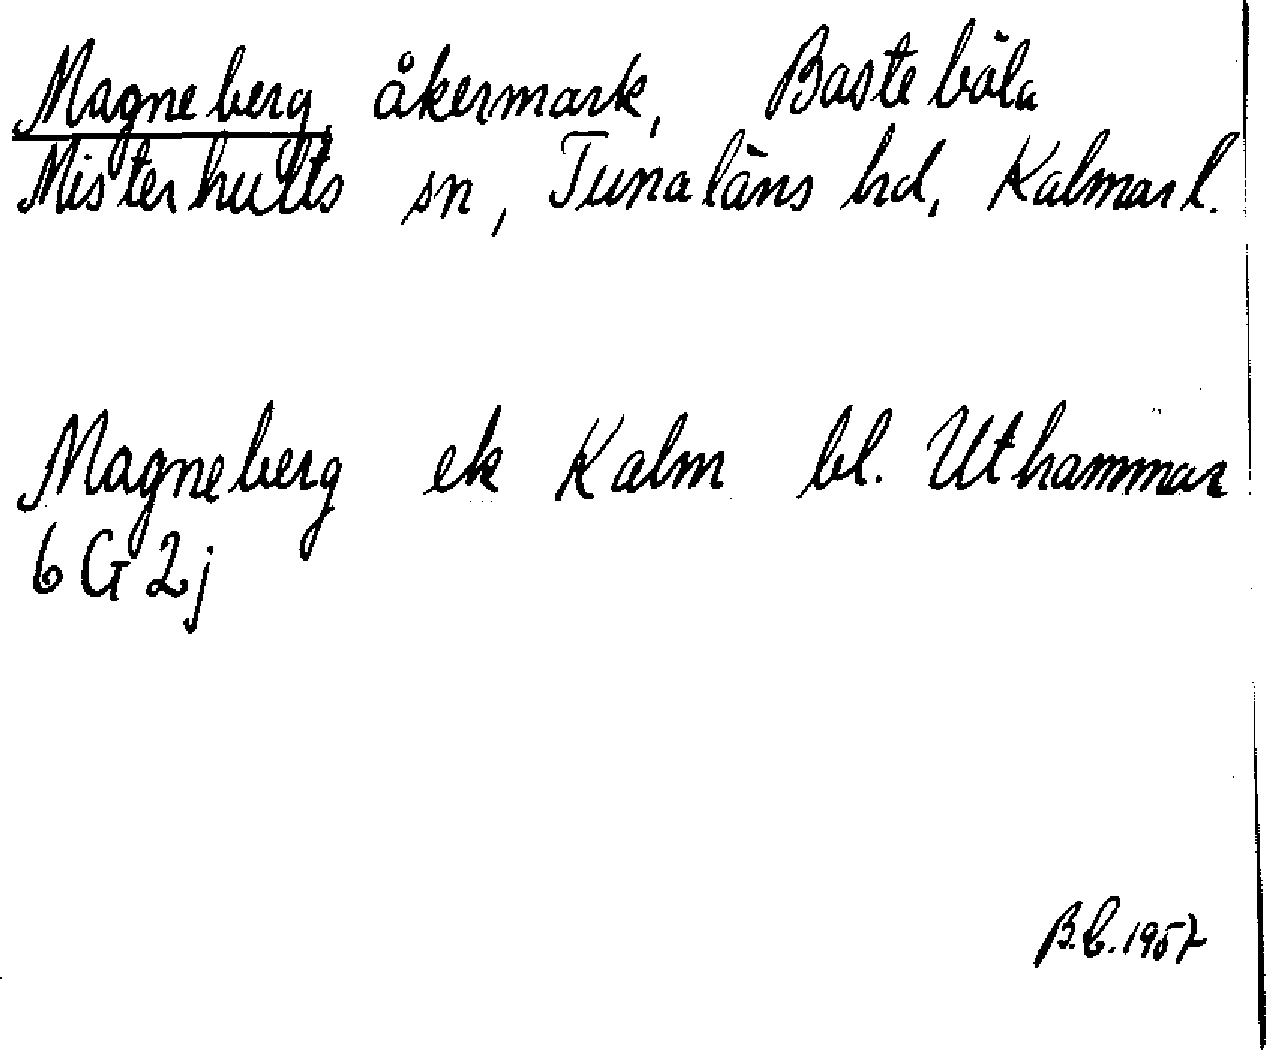 Magneberg, åkermark, Basteböla
Misterhults sn, Tunaläns hd, Kalmar l.
Magneberg ek Kalm bl. Uthammar
6 G 2 j
B.C. 1957